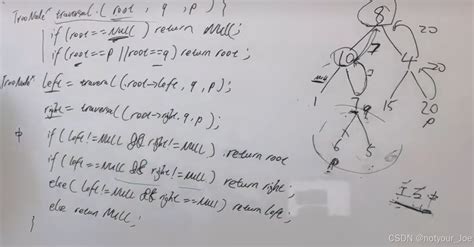 TreeNode* traversal (root, q, p) {
if (root == NULL) return NULL;
if (root == p || root == q) return root;
TreeNode* left = traversal (root->left, q, p);
right = traversal (root->right, q, p);
中 if (left != NULL && right != NULL) return root
if (left == NULL && right != NULL) return right;
else (left != NULL && right == NULL) return left;
else return NULL;
}
8 20
10 7 4 20
NULL
1 7 q 15 20
p
6 5
p
CSDN @notyour_Joe